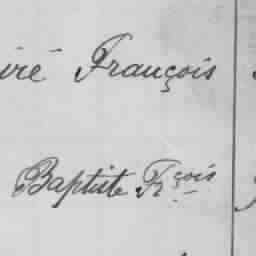 iré François
Baptiste Frçois